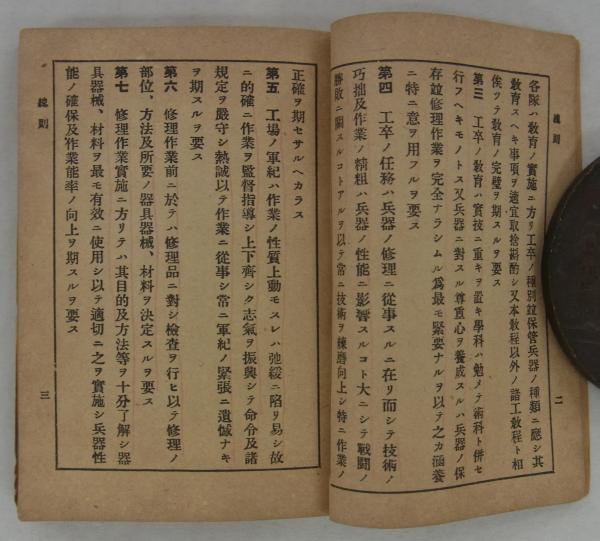 總則
二
各隊ハ敎育ノ實施ニ方リ工卒ノ種別竝保管兵器ノ種類ニ應シ其
敎育スヘキ事項ヲ適宜取捨斟酌シ又本敎程以外ノ諸工敎程ト相
俟ツテ敎育ノ完璧ヲ期スルヲ要ス
第三 工卒ノ敎育ハ實技ニ重キヲ置キ學科ハ勉メテ術科ト併セ
行フヘキモノトス又兵器ニ對スル尊重心ヲ養成スルハ兵器ノ保
存竝修理作業ヲ完全ナラシムル爲最モ緊要ナルヲ以テ之カ涵養
ニ特ニ意ヲ用フルヲ要ス
第四 工卒ノ任務ハ兵器ノ修理ニ從事スルニ在リ而シテ技術ノ
巧拙及作業ノ精粗ハ兵器ノ性能ニ影響スルコト大ニシテ戰鬪ノ
勝敗ニ關スルコトアルヲ以テ常ニ技術ヲ練磨向上シ特ニ作業ノ
正確ヲ期セサルヘカラス
第五 工場ノ軍紀ハ作業ノ性質上動モスレハ弛緩ニ陷リ易シ故
ニ的確ニ作業ヲ監督指導シ上下齊シク志氣ヲ振興シテ命令及諸
規定ヲ嚴守シ熱誠以テ作業ニ從事シ常ニ軍紀ノ緊張ニ遺憾ナキ
ヲ期スルヲ要ス
第六 修理作業前ニ於テハ修理品ニ對シ檢査ヲ行ヒ以テ修理ノ
部位、方法及所要ノ器具器械、材料ヲ決定スルヲ要ス
第七 修理作業實施ニ方リテハ其目的及方法等ヲ十分了解シ器
具器械、材料ヲ最モ有效ニ使用シ以テ適切ニ之ヲ實施シ兵器性
能ノ確保及作業能率ノ向上ヲ期スルヲ要ス
總則
三